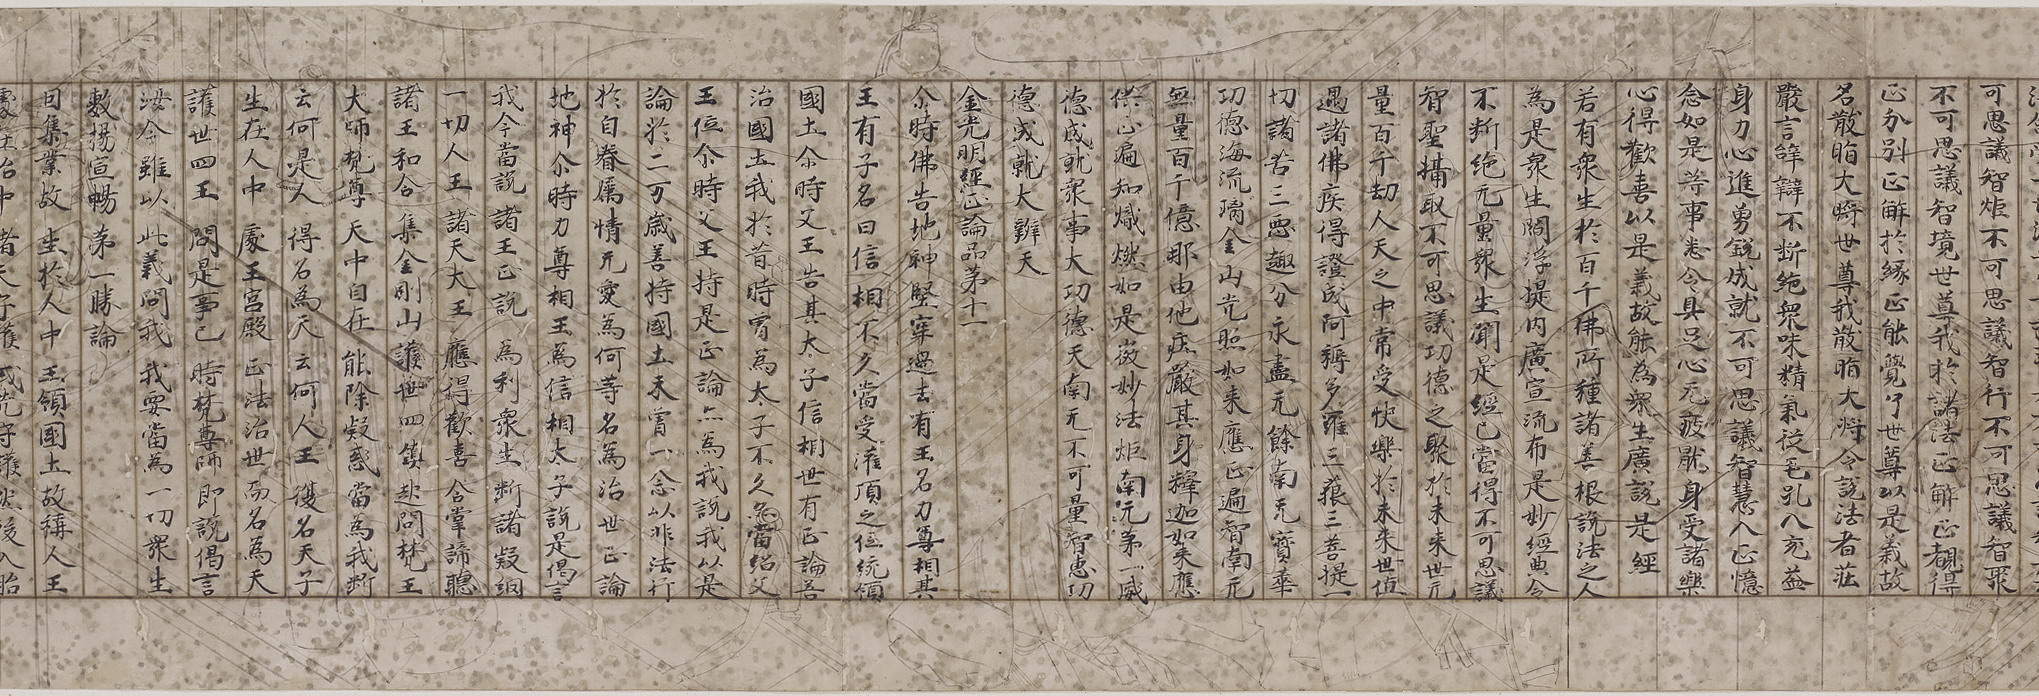 可思議智炬不可思議智行不可思議智聚
不可思議智境世尊我於諸法正解正觀得
正分別正解於緣正能覺了世尊以是義故
名散脂大將世尊我散脂大將令說法者莊
嚴言辞辯不断絶衆味精氣從毛孔入充益
身力心進勇銳成就不可思議智慧入正憶
念如是等事悉令具足心无疲猒身受諸樂
心得歡喜以是義故能為衆生廣說是經
若有衆生於百千佛所種諸善根說法之人
為是衆生閻浮提内廣宣流布是妙經典令
不断絶无量衆生聞是經已當得不可思議
智聖攝取不可思議功德之聚於未来世无
量百千劫人天之中常受快樂於未来世值
遇諸佛疾得證成阿耨多羅三藐三菩提一
切諸苦三惡趣分永盡无餘南无寶華
功德海流璃金山光照如来應正遍智南无
無量百千億那由他庄嚴其身釋迦如来應
供正遍知熾燃如是微妙法炬南无第一威
德成就衆事大功德天南无不可量智惠功
德成就大辯天
金光明經正論品第十一
尒時佛告地神堅牢過去有王名力尊相其
王有子名曰信相不久當受灌頂之位統領
國土尒時父王告其太子信相世有正論善
治國土我於昔時曽為太子不久亦當紹父
王位尒時父王持是正論亦為我說我以是
論於二万歳善持國土未曽一念以非法行
於自眷属情无愛著何等名為治世正論
地神尒時力尊相王為信相太子說是偈言
我今當說 諸王正說 為利衆生 断諸疑網
一切人王 諸天大王 應得歡喜 合掌諦聽
諸王和合 集金剛山 護世四鎮 起問梵王
大師梵尊 天中自在 能除疑惑 當為我断
云何是人 得名為天 云何人王 復名天子
生在人中 處王宮殿 正法治世 而名為天
護世四王 問是事已 時梵尊師 即說偈言
汝今雖以 此義問我 我要當為 一切衆生
敷揚宣暢 第一勝論
因集業故 生於人中 王領國土 故稱人王
處在胎中 諸天守護 或先守護 然後入胎